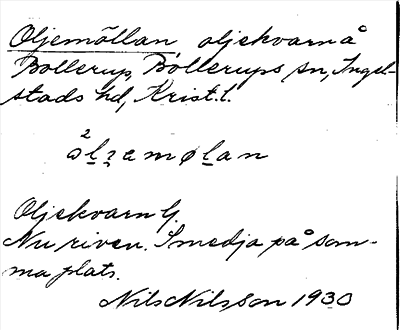 Oljemöllan, oljekvarn å
Bollerup, Bollerups sn, Ingel-
stads hd, Krist. l.
Oljekvarn
Nu riven. Smedja på sam-
ma plats.
Nils Nilsson 1930